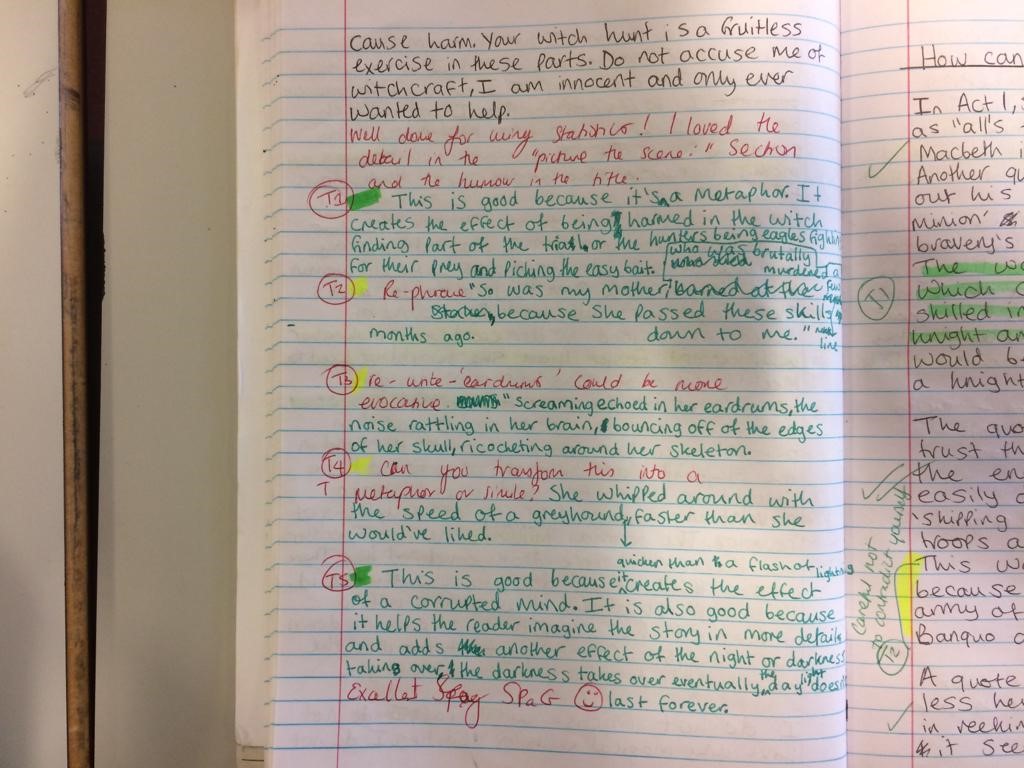 cause harm. Your witch hunt is a fruitless
exercise in these parts. Do not accuse me of
witchcraft, I am innocent and only ever
wanted to help.
Well done for using statistics! I loved the
detail in the "picture the scene:" section
and the humour in the title.
T1 This is good because it's a metaphor. It
creates the effect of being harmed in the witch
finding part of the trial or the hunters being eagles fighting
for their prey and picking the easy bait.
who was brutally
murdered a
few
T2 Re-phrase "So was my mother, burned at the
stake, because she passed these skills
months ago. down to me."
line
T3 re-write - 'eardrums' could be more
evocative. "screaming echoed in her eardrums, the
noise rattling in her brain, bouncing off of the edges
of her skull, ricocheting around her skeleton.
T4 Can you transform this into a
T metaphor or simile? She whipped around with
the speed of a greyhound, faster than she
would've liked.
quicker than a flash of lighting
T5 This is good because it creates the effect
of a corrupted mind. It is also good because
it helps the reader imagine the story in more detail
and adds another effect of the night or darkness
taking over, the darkness takes over eventually the day light doesn't
Exallet Spag SPaG last forever.
How can
In Act 1,
as "all's
Macbeth i
Another qu
out his
minion'
bravery's
The wo
which c
T1 skilled in
knight an
would b
a knight
The quo
trust th
the en
easily a
'skipping
troops a
This wo
because
army of
Banquo a
Careful not
to contradict yourself
T2
A quote
less her
in reeking
it see